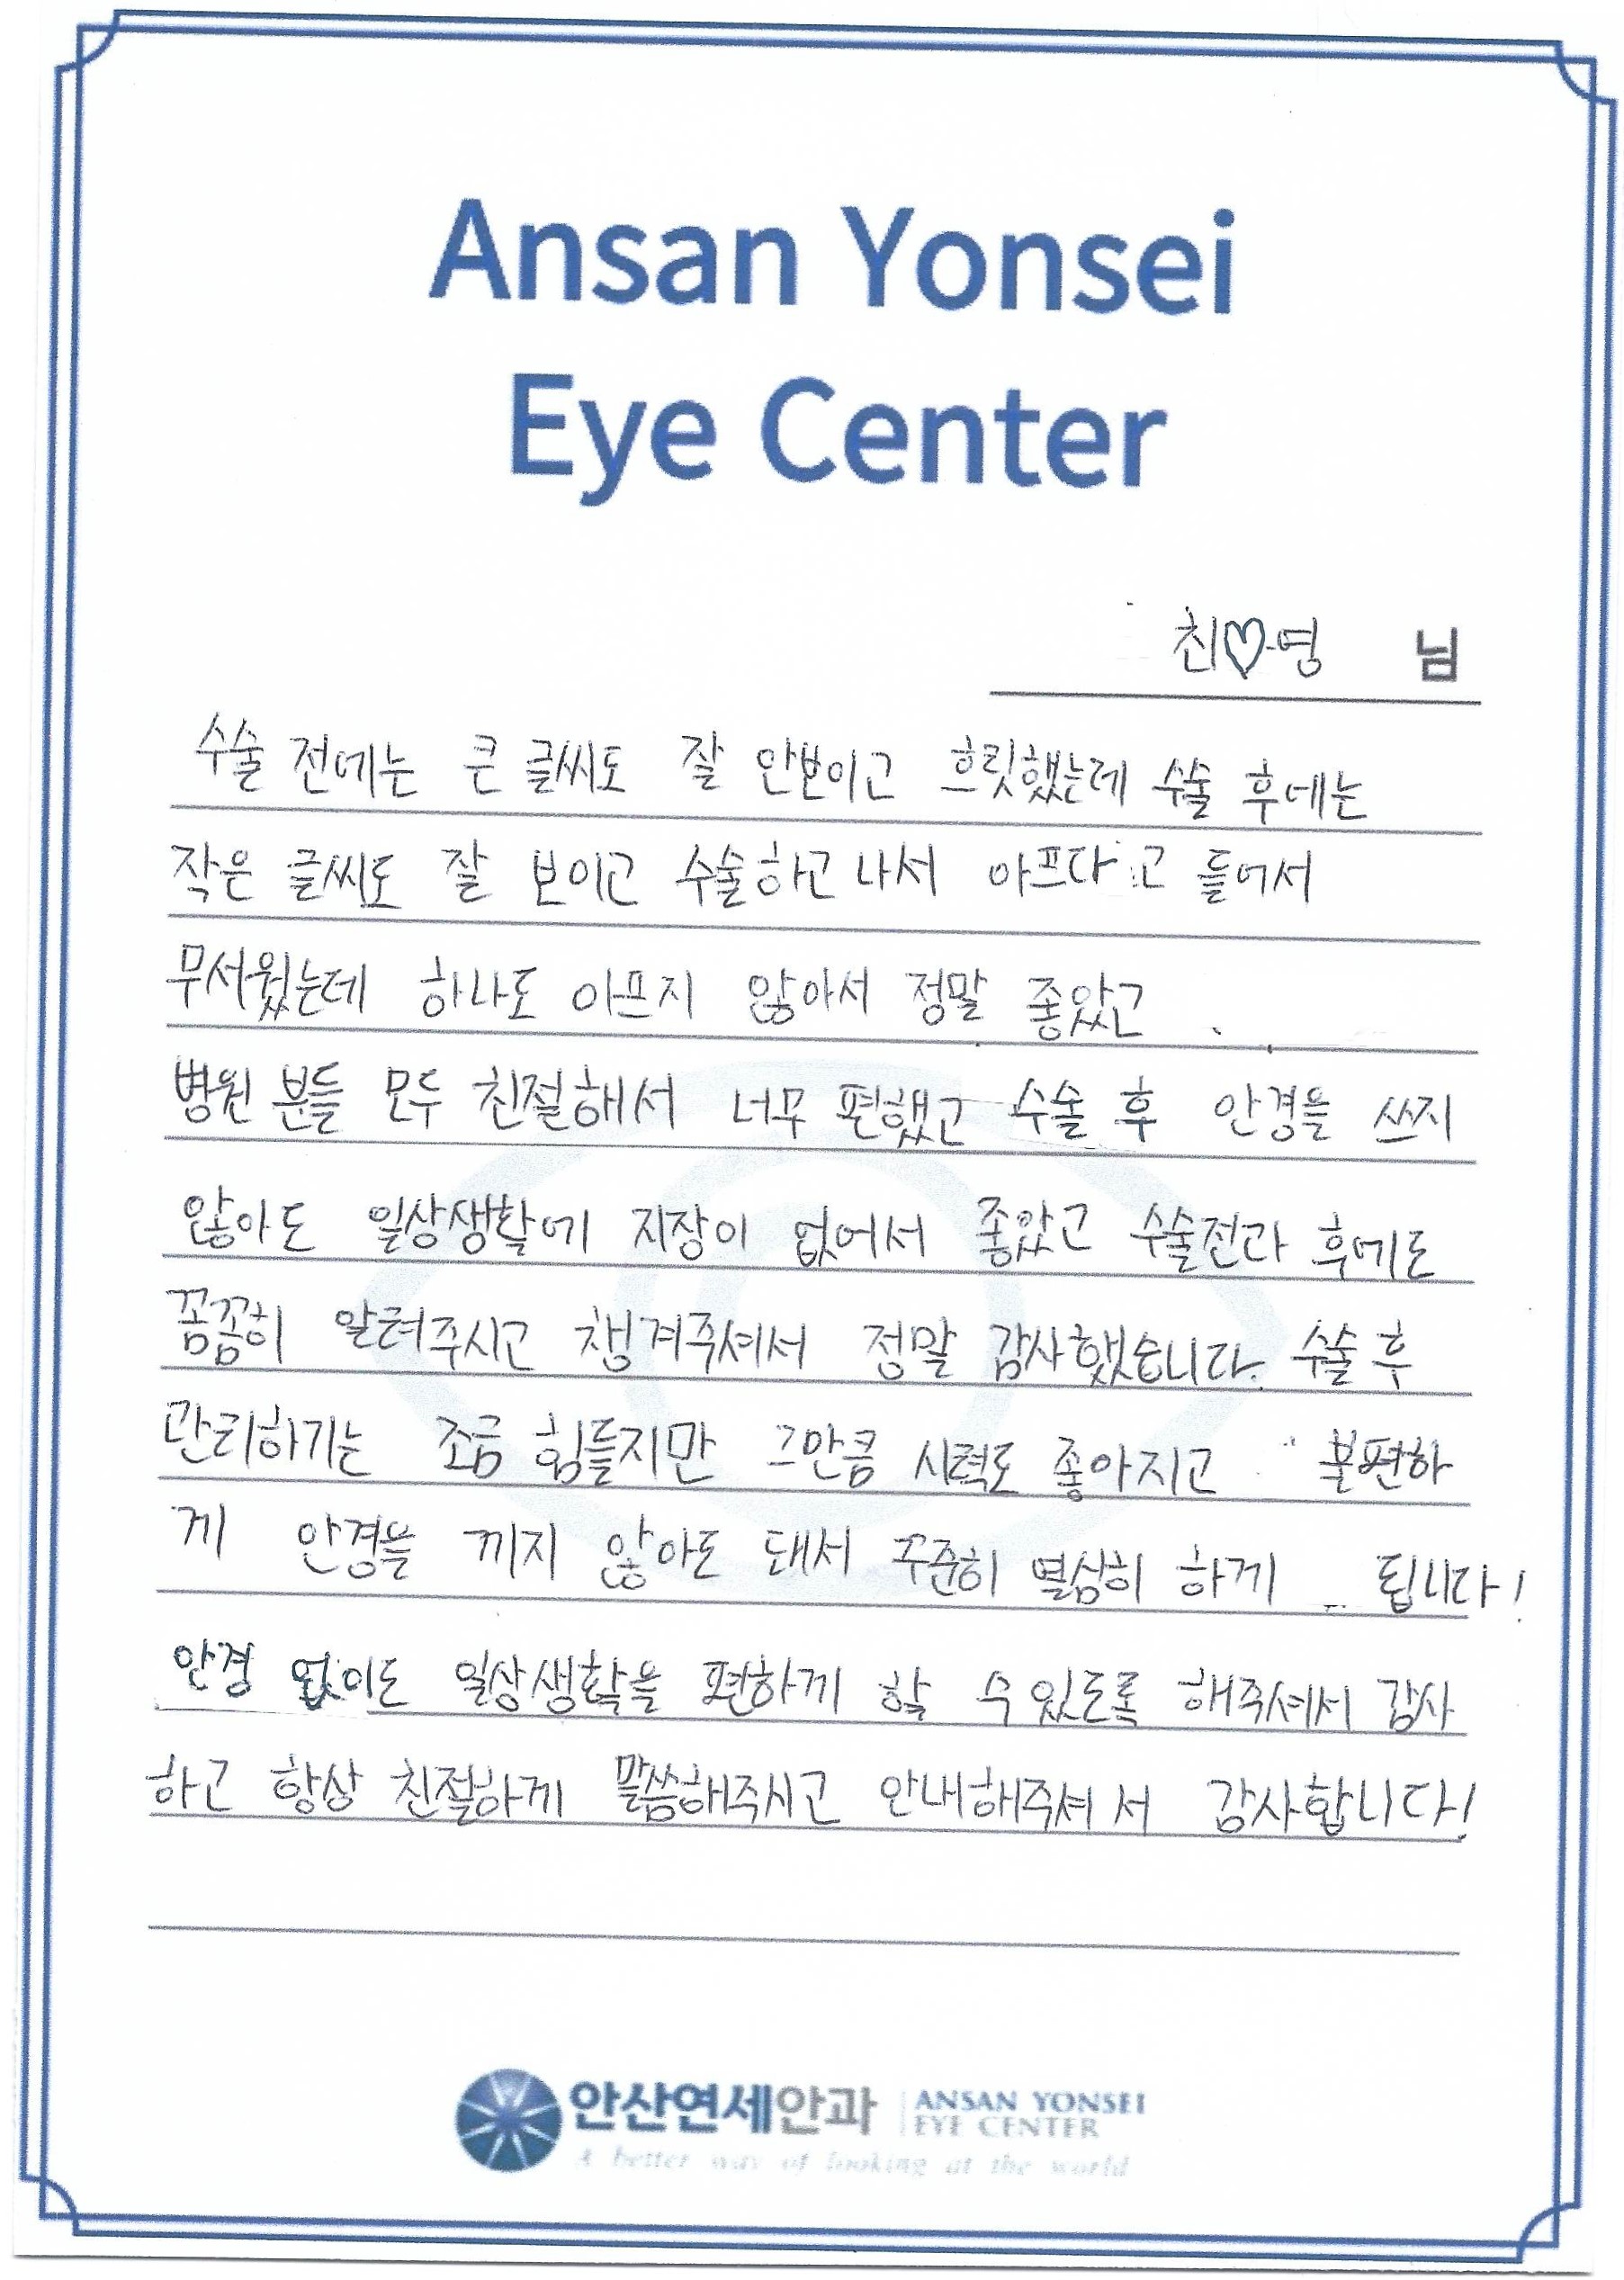 Ansan Yonsei
Eye Center
최♡영 님
수술 전에는 큰 글씨도 잘 안보이고 흐릿했는데 수술 후에는
작은 글씨도 잘 보이고 수술하고 나서 아프다고 들어서
무서웠는데 하나도 아프지 않아서 정말 좋았고
병원 분들 모두 친절해서 너무 편했고 수술 후 안경을 쓰지
않아도 일상생활에 지장이 없어서 좋았고 수술전과 후에도
꼼꼼히 알려주시고 챙겨주셔서 정말 감사했습니다. 수술 후
관리하기는 조금 힘들지만 그만큼 시력도 좋아지고 불편하
게 안경을 끼지 않아도 돼서 꾸준히 열심히 하게 됩니다!
안경 없이도 일상생활을 편하게 할 수 있도록 해주셔서 감사
하고 항상 친절하게 말씀해주시고 안내해주셔서 감사합니다!
안산연세안과 ANSAN YONSEI
EYE CENTER
A better way of looking at the world